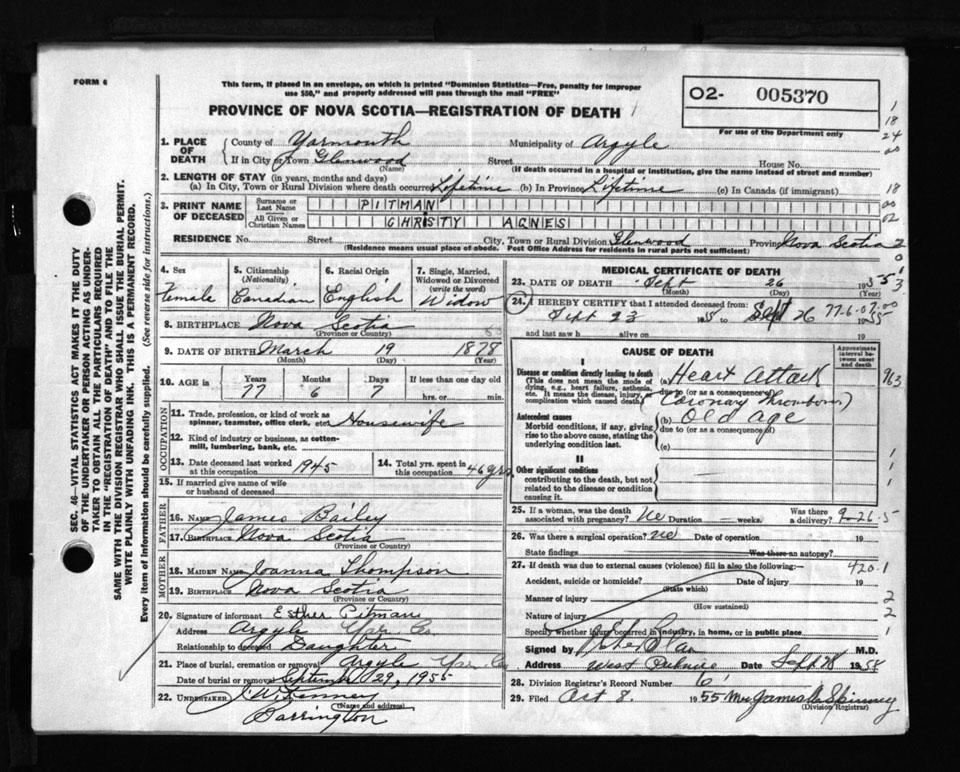 FORM 6
This form, if placed in an envelope, on which is printed "Dominion Statistics—Free, penalty for improper
use $50," and properly addressed will pass through the mail "FREE"
PROVINCE OF NOVA SCOTIA—REGISTRATION OF DEATH
O2- 005370
For use of the Department only
1
18
24
00
18
00
02
2
0
1
3
SEC. 46—VITAL STATISTICS ACT MAKES IT THE DUTY
OF THE UNDERTAKER OR PERSON ACTING AS UNDER-
TAKER TO OBTAIN ALL THE PARTICULARS REQUIRED
IN THE "REGISTRATION OF DEATH" AND TO FILE THE
SAME WITH THE DIVISION REGISTRAR WHO SHALL ISSUE THE BURIAL PERMIT.
WRITE PLAINLY WITH UNFADING INK. THIS IS A PERMANENT RECORD.
Every item of information should be carefully supplied. (See reverse side for instructions.)
1. PLACE OF DEATH
County of Yarmouth Municipality of Argyle
If in City or Town Glenwood Street House No.
(Name) (If death occurred in a hospital or institution, give the name instead of street and number)
2. LENGTH OF STAY (in years, months and days)
(a) In City, Town or Rural Division where death occurred Lifetime (b) In Province Lifetime (c) In Canada (if immigrant)
3. PRINT NAME OF DECEASED
Surname or Last Name PITMAN
All Given or Christian Names CHRISTY AGNES
RESIDENCE No. Street City, Town or Rural Division Glenwood Province Nova Scotia
(Residence means usual place of abode. Post Office Address for residents in rural parts not sufficient)
4. Sex Female
5. Citizenship (Nationality) Canadian
6. Racial Origin English
7. Single, Married, Widowed or Divorced (write the word) Widow
8. BIRTHPLACE Nova Scotia
(Province or Country)
9. DATE OF BIRTH March 19 1878
(Month) (Day) (Year)
10. AGE in Years Months Days If less than one day old
77 6 7 hrs. or min.
OCCUPATION
11. Trade, profession, or kind of work as
spinner, teamster, office clerk, etc. Housewife
12. Kind of industry or business, as cotton-
mill, lumbering, bank, etc.
13. Date deceased last worked at this occupation 1945
14. Total yrs. spent in this occupation 46 yrs
15. If married give name of wife
or husband of deceased
FATHER
16. NAME James Bailey
17. BIRTHPLACE Nova Scotia
(Province or Country)
MOTHER
18. MAIDEN NAME Joanna Thompson
19. BIRTHPLACE Nova Scotia
(Province or Country)
20. Signature of informant Esther Pitman
Address Argyle Yar. Co.
Relationship to deceased Daughter
21. Place of burial, cremation or removal Argyle Yar. Co
Date of burial or removal September 29, 1955
22. UNDERTAKER J. W. Kenney
(Name and address)
Barrington
MEDICAL CERTIFICATE OF DEATH
23. DATE OF DEATH Sept 26 1955
(Month) (Day) (Year)
24. I HEREBY CERTIFY that I attended deceased from:
Sept 23 1955 to Sept 26 1955
77.6.07.00
and last saw h alive on 19
CAUSE OF DEATH
Approximate interval between onset and death
I
Disease or condition directly leading to death
(This does not mean the mode of
dying, e.g., heart failure, asthenia,
etc. It means the disease, injury, or
complication which caused death)
(a) Heart Attack
due to (or as a consequence of)
(Coronary Thrombosis)
Antecedent causes
Morbid conditions, if any, giving
rise to the above cause, stating the
underlying condition last.
(b) Old age
due to (or as a consequence of)
(c)
II
Other significant conditions
contributing to the death, but not
related to the disease or condition
causing it.
963
1
1
1
25. If a woman, was the death
associated with pregnancy? No Duration — weeks. Was there a delivery?
9-26-5
26. Was there a surgical operation? No Date of operation 19
State findings Was there an autopsy?
27. If death was due to external causes (violence) fill in also the following:—
420.1
Accident, suicide or homicide? Date of injury 19
(State which)
Manner of injury 2
(How sustained)
Nature of injury 2
Specify whether injury occurred in industry, in home, or in public place 1
Signed by M.D.
Address West Pubnico Date Sept 28 1955
28. Division Registrar's Record Number 61
29. Filed Oct 8. 1955 Mrs James Skinney
(Division Registrar)